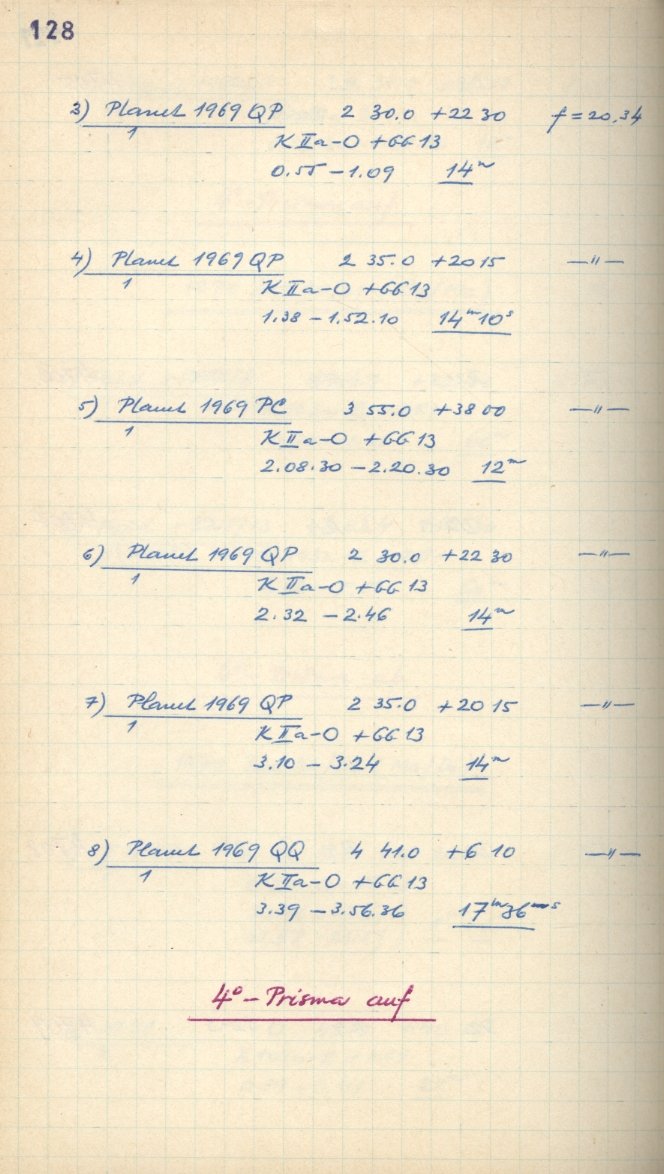 128
3) Planet 1969 QP 2 30.0 +22 30 f = 20,34
1 K IIa-O + GG 13
0.55 - 1.09 14ᵐ
4) Planet 1969 QP 2 35.0 +20 15 —"—
1 K IIa-O + GG 13
1.38 - 1.52.10 14ᵐ10ˢ
5) Planet 1969 PC 3 55.0 +38 00 —"—
1 K IIa-O + GG 13
2.08.30 - 2.20.30 12ᵐ
6) Planet 1969 QP 2 30.0 +22 30 —"—
1 K IIa-O + GG 13
2.32 - 2.46 14ᵐ
7) Planet 1969 QP 2 35.0 +20 15 —"—
1 K IIa-O + GG 13
3.10 - 3.24 14ᵐ
8) Planet 1969 QQ 4 41.0 +6 10 —"—
1 K IIa-O + GG 13
3.39 - 3.56.36 17ᵐ36ˢ
4° - Prisma auf